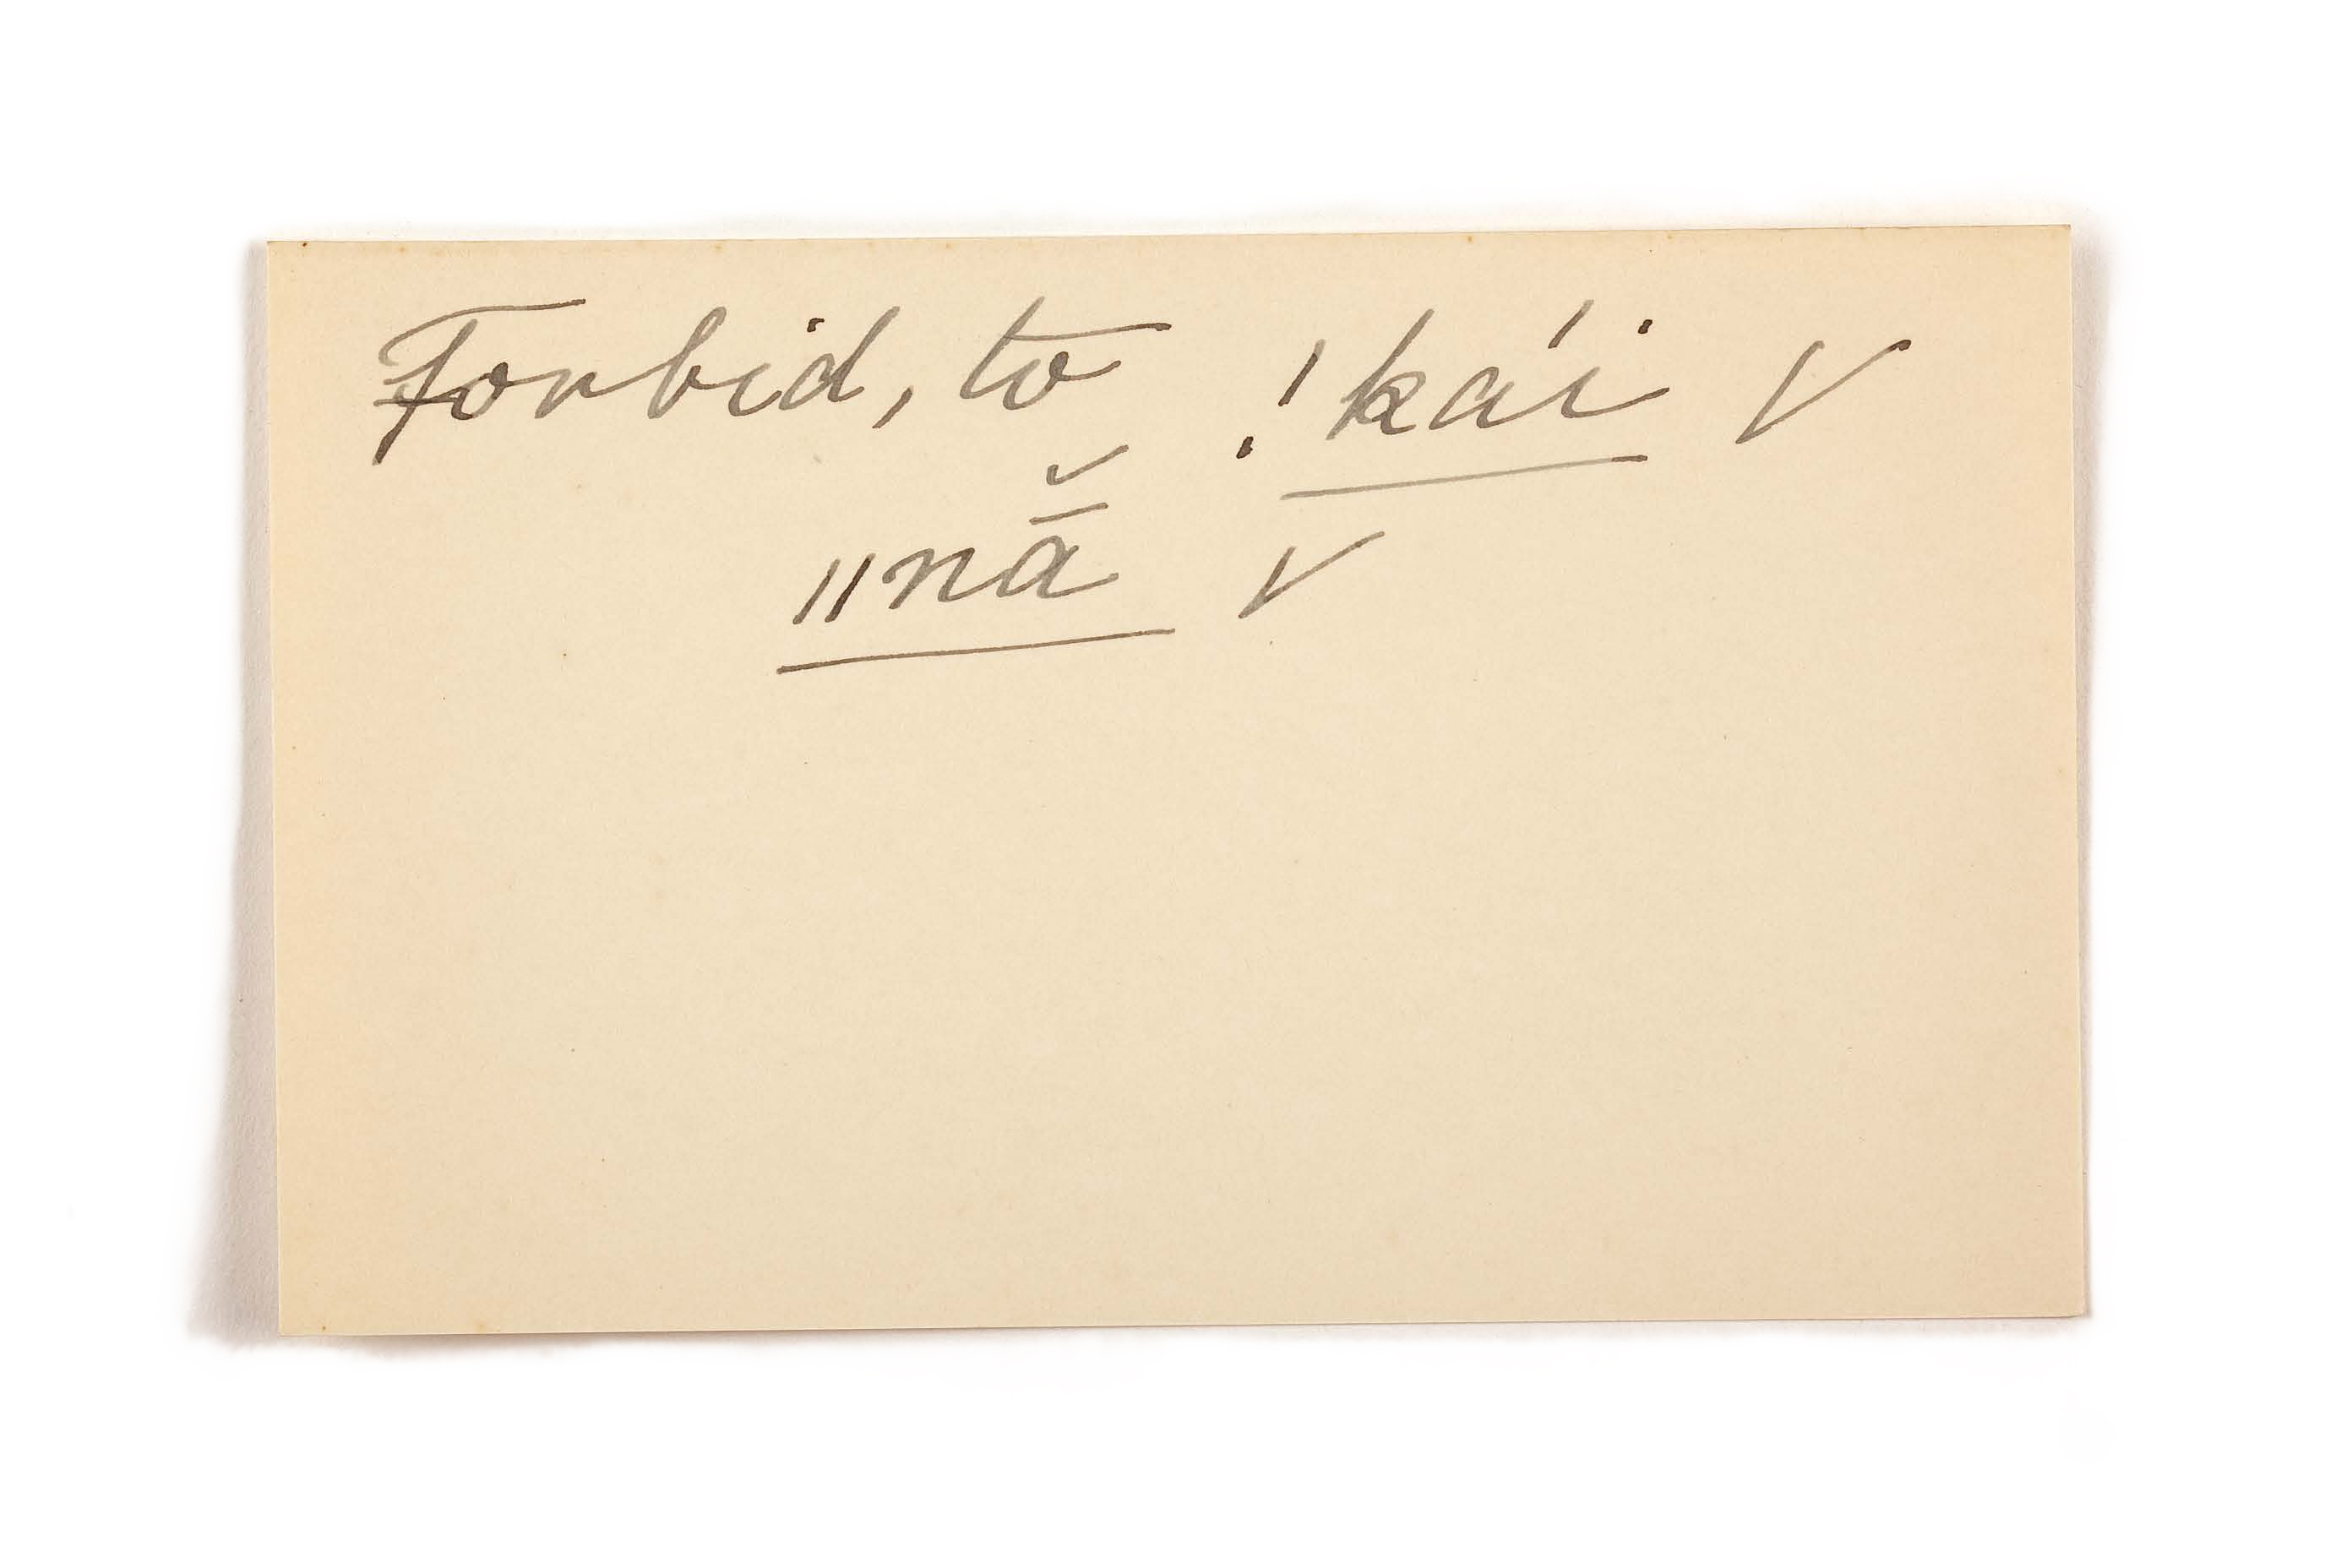 Forbid, to !kái ✓
‖nā̆ ✓